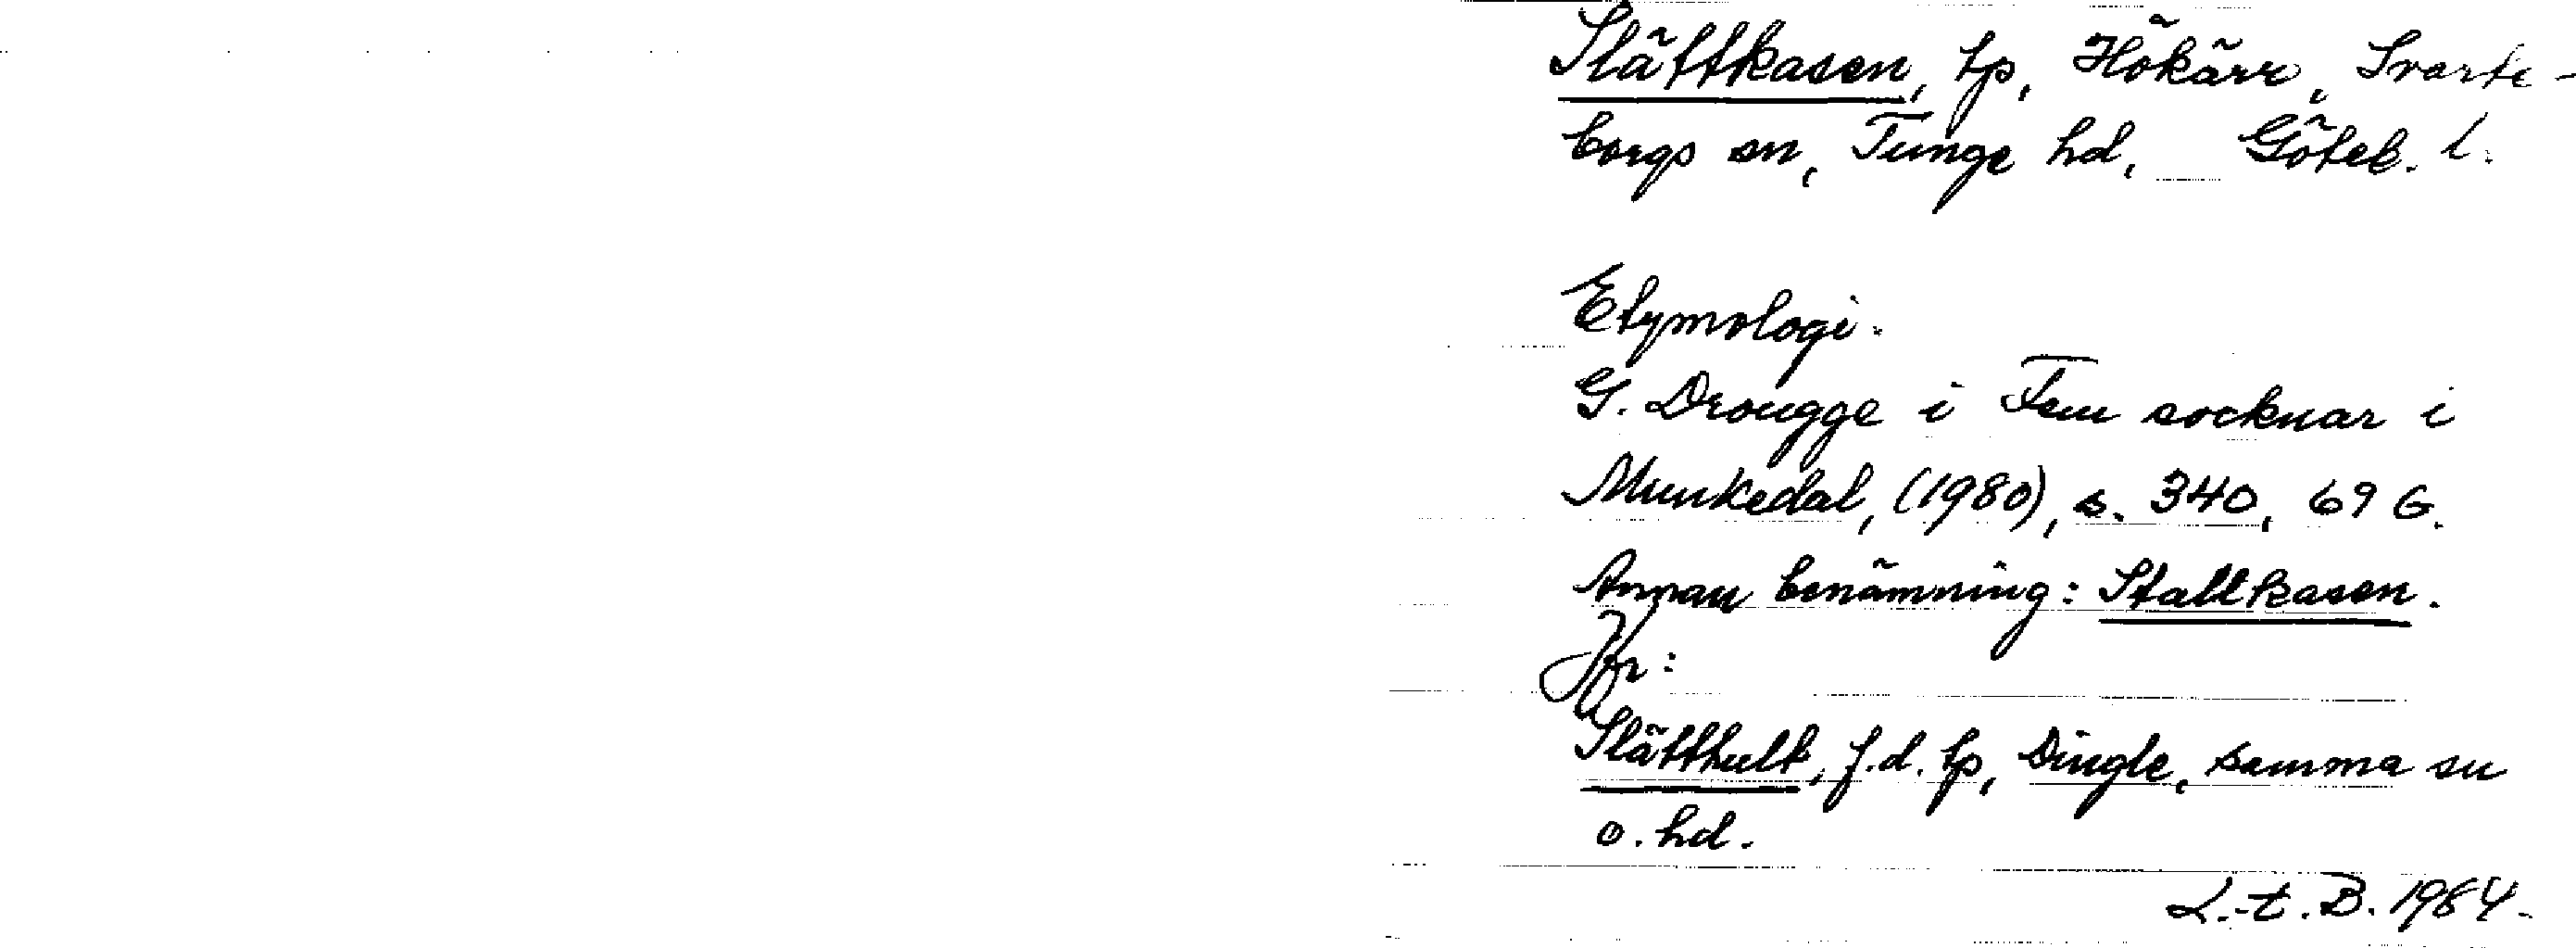 Slättkasen, tp, Hökärr, Svarte-
borgs sn, Tunge hd, Göteb. l.
Etymologi.
G. Drougge i Fem socknar i
Munkedal, (1980), s. 340, 69 G.
Annan benämning: Stallkasen.
Jfr:
Slätthult, f.d. tp, Dingle, samma sn
o. hd.
L.-t. B. 1984.